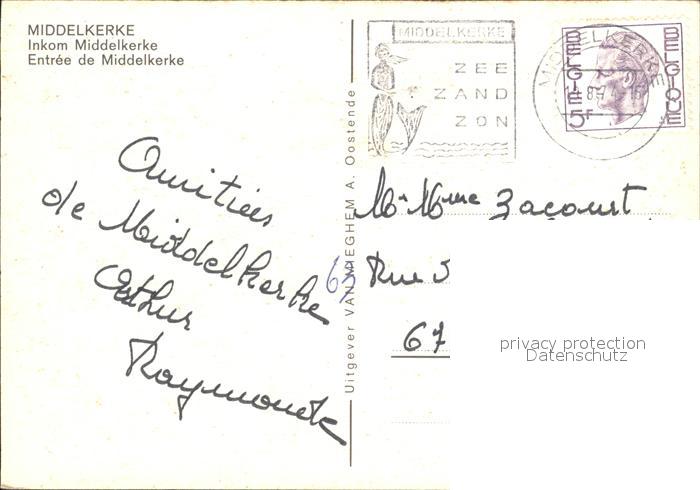 MIDDELKERKE
Inkom Middelkerke
Entrée de Middelkerke
Amitiés
de Middelkerke
Arthur
Raymonde
Uitgever VAN MIEGHEM A. Oostende
63
MIDDELKERKE
ZEE
ZAND
ZON
MIDDELKERKE
BELGIE 5F
BELGIQUE
Mr Mme Bacourt
Rue
67
privacy protection
Datenschutz